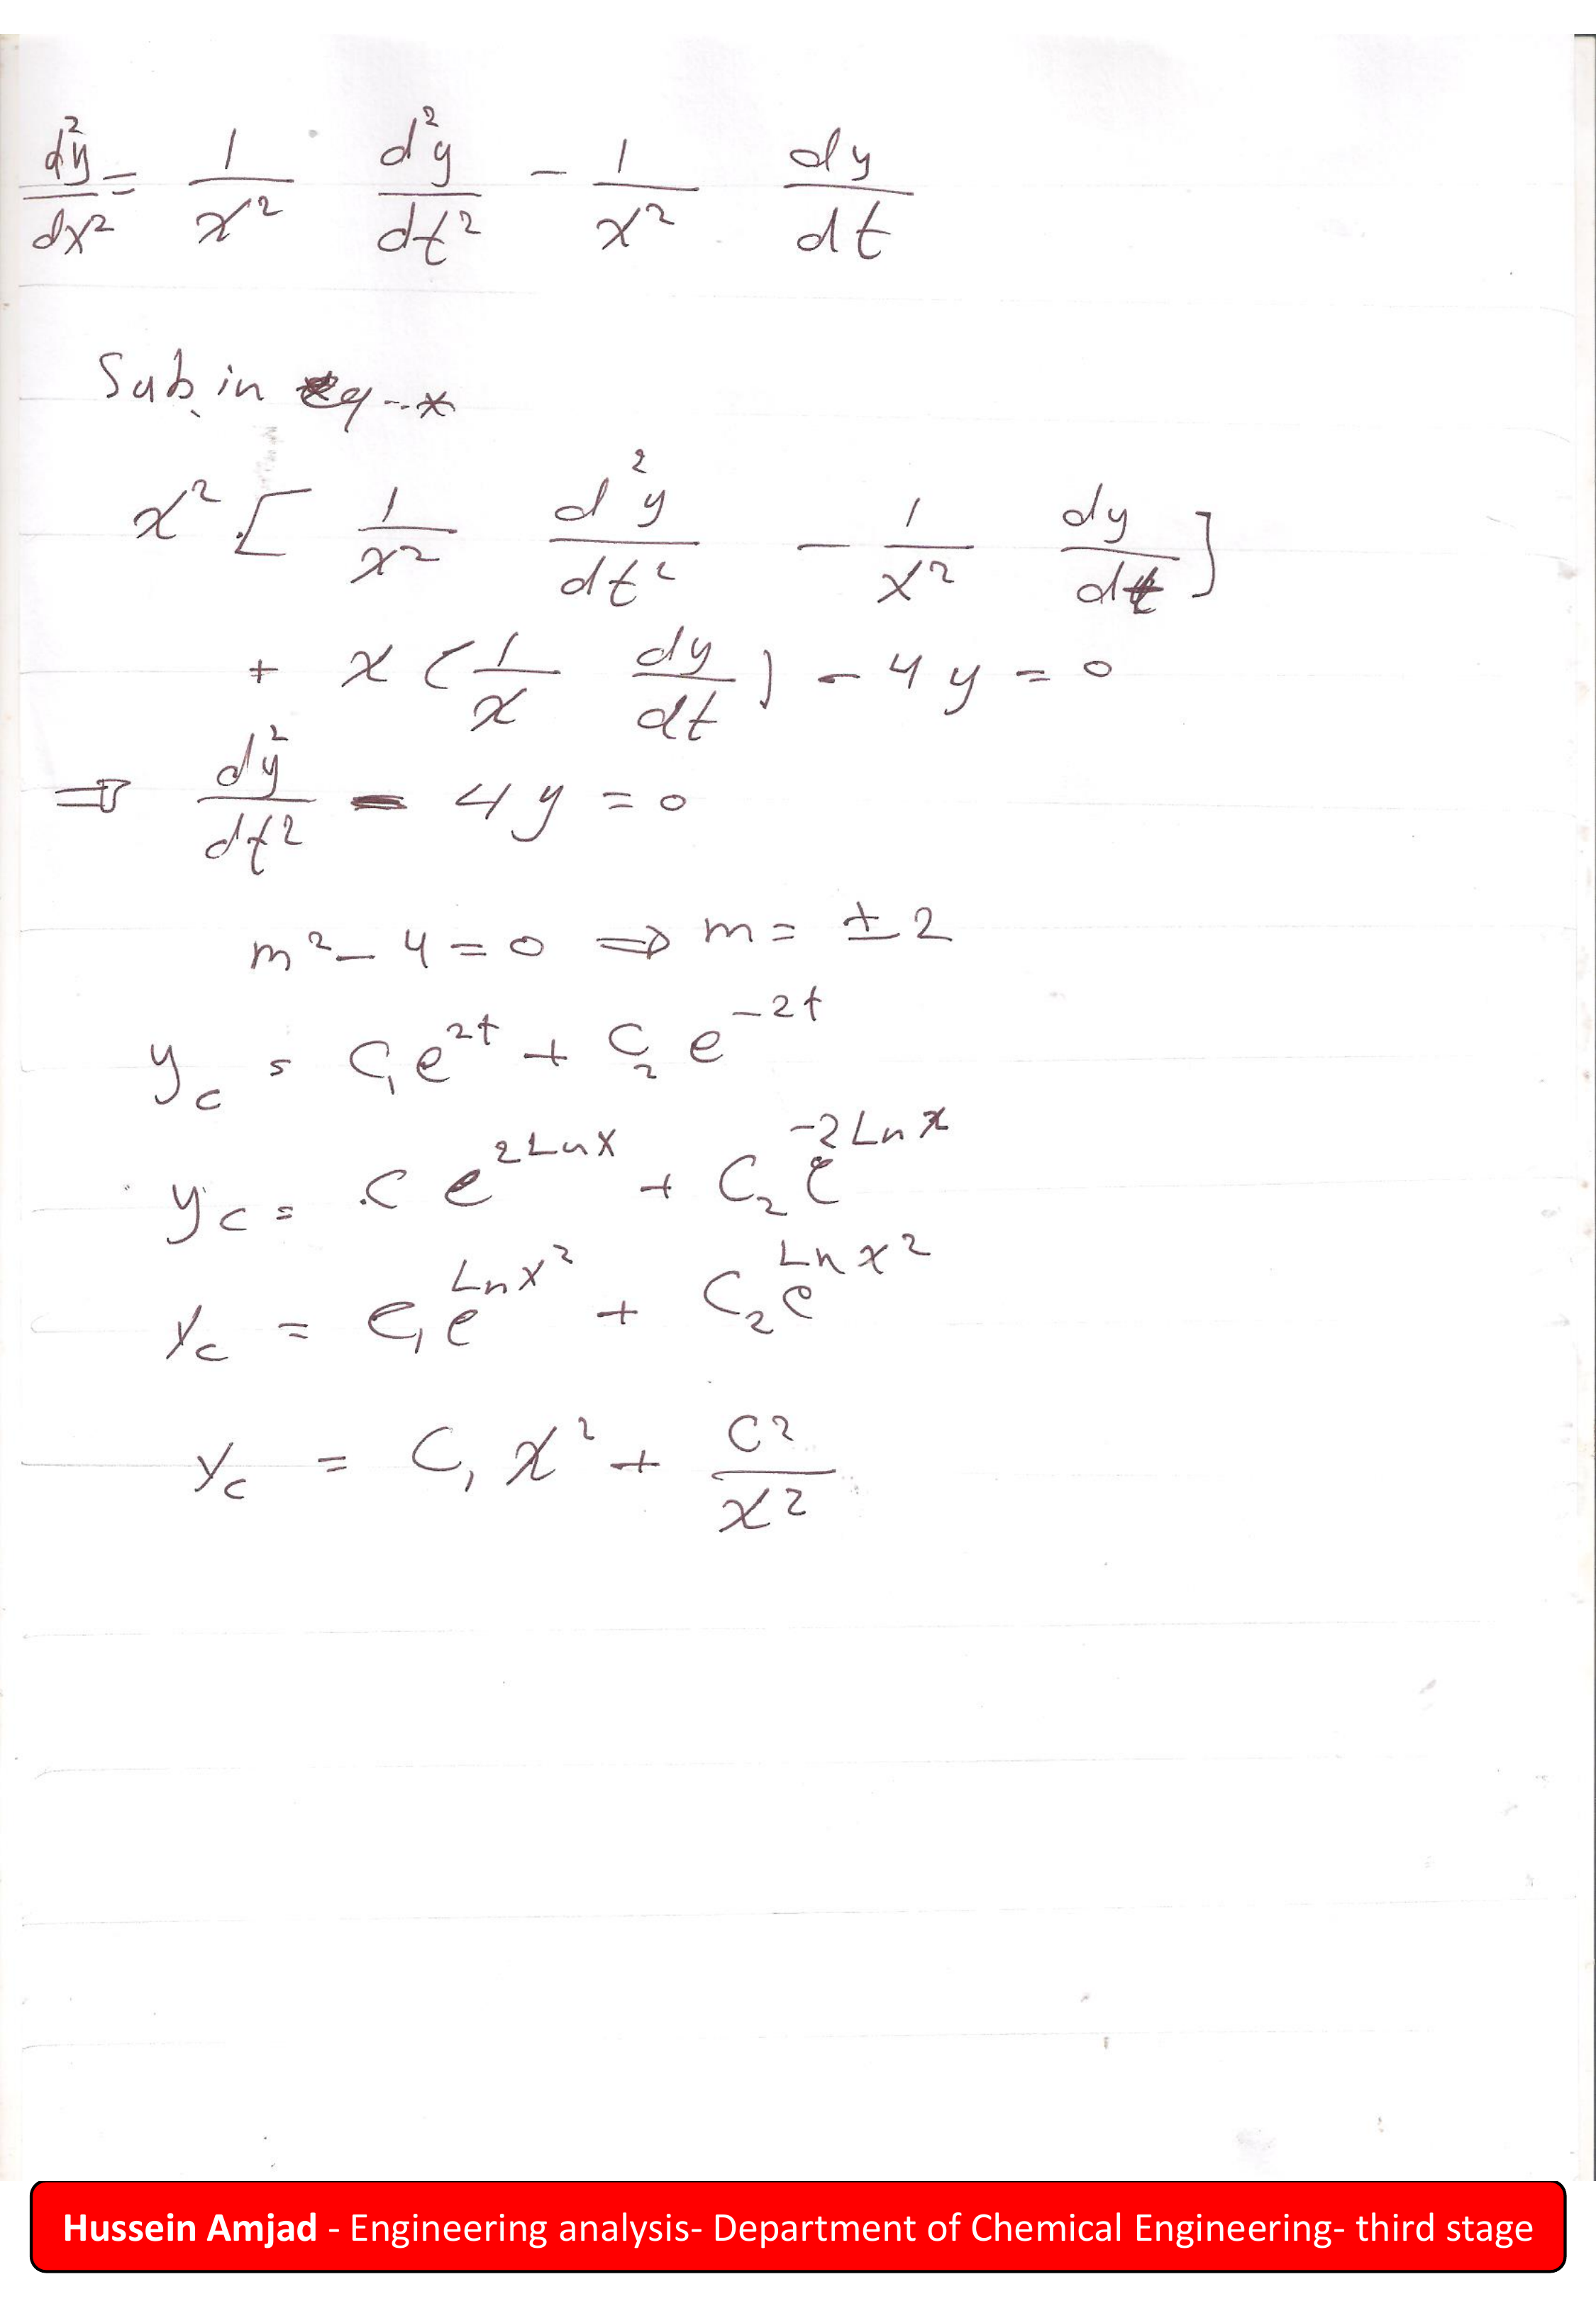 d²y/dx² = 1/x² d²y/dt² - 1/x² dy/dt
Sub. in eq--*
x² [ 1/x² d²y/dt² - 1/x² dy/dt ]
+ x ( 1/x dy/dt ) - 4y = 0
⇒ d²y/dt² - 4y = 0
m² - 4 = 0 ⇒ m = ± 2
y_c = C₁e^{2t} + C₂ e^{-2t}
y_c = C e^{2Lnx} + C₂ e^{-2Lnx}
y_c = C₁e^{Lnx²} + C₂e^{Lnx²}
y_c = C₁ x² + C2/x²
Hussein Amjad - Engineering analysis- Department of Chemical Engineering- third stage